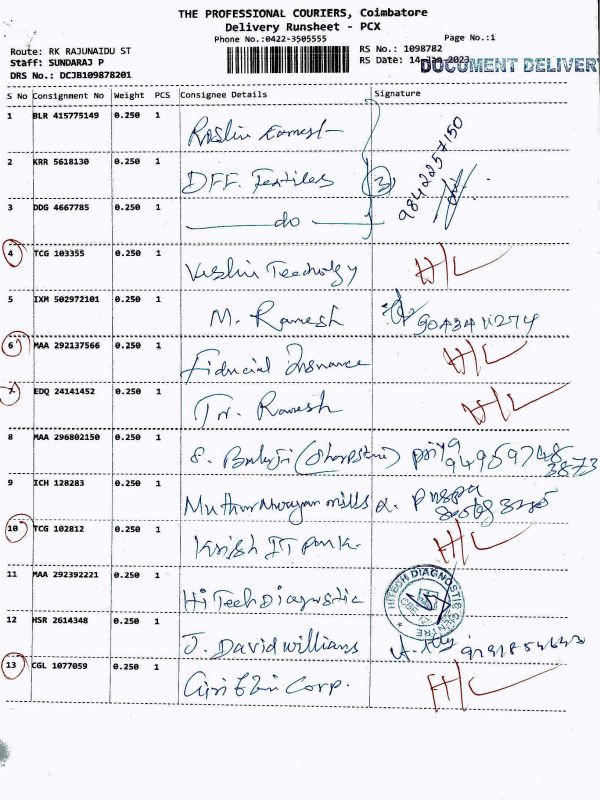 THE PROFESSIONAL COURIERS, Coimbatore
Delivery Runsheet - PCX
Phone No.:0422-3505555
Page No.:1
Route: RK RAJUNAIDU ST
RS No.: 1098782
Staff: SUNDARAJ P
RS Date: 14-Jan-2023
DOCUMENT DELIVERY
DRS No.: DCJB109878201
S No Consignment No Weight PCS Consignee Details Signature
1 BLR 415775149 0.250 1
2 KRR 5618130 0.250 1 DFF. Textiles (3) 9842257150
3 DDG 4667785 0.250 1 do
4 TCG 103355 0.250 1 H/C
5 IXM 502972101 0.250 1 M. Ramesh
6 MAA 292137566 0.250 1 H/C
7 EDQ 24141452 0.250 1 Tr. Ramesh H/C
8 MAA 296802150 0.250 1 priya
9 ICH 128283 0.250 1
10 TCG 102812 0.250 1 Krish IT park. H/C
11 MAA 292392221 0.250 1 HiTech Diagnostic HITECH DIAGNOSTIC CENTRE
12 HSR 2614348 0.250 1 J. David willians
13 CGL 1077059 0.250 1 Corp. H/C